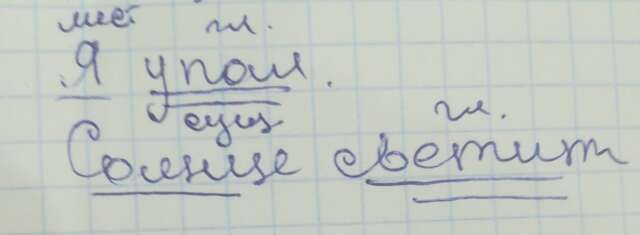 мест гл.
Я упал.
сущ гл.
Солнце светит